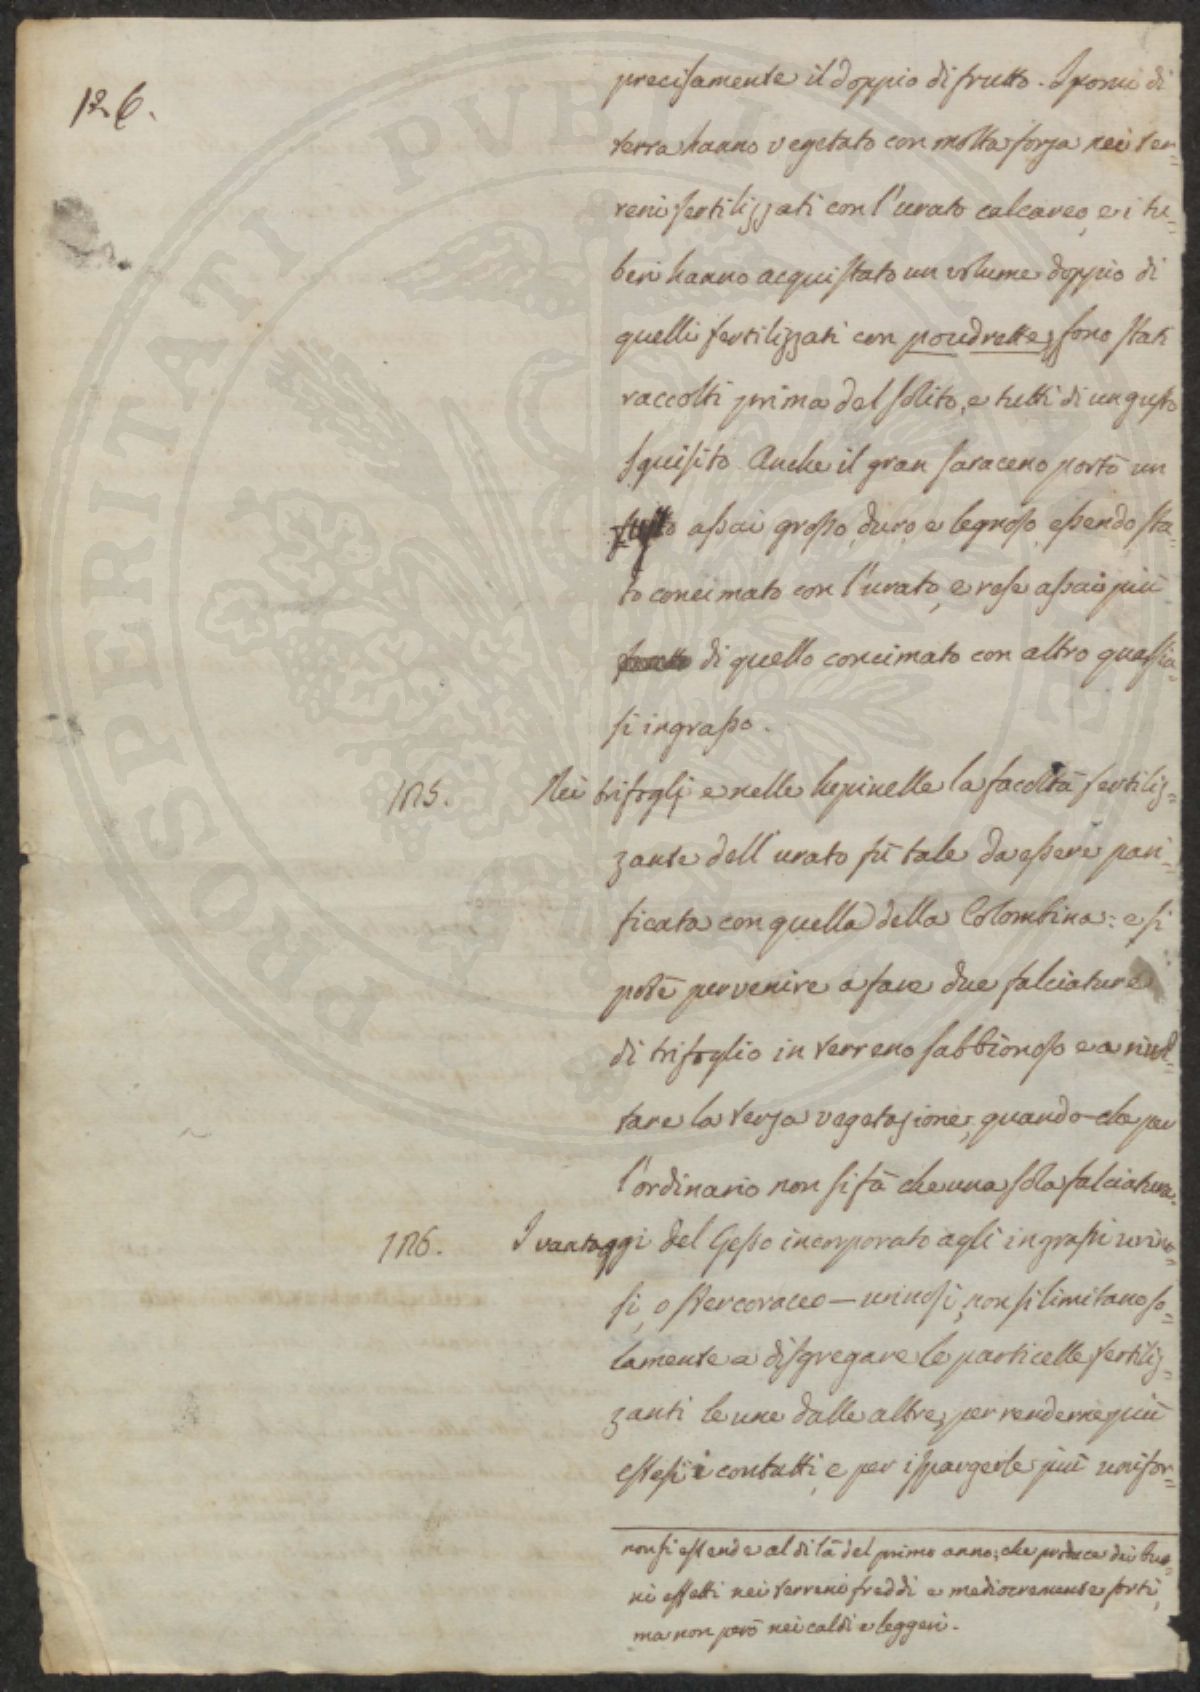 126.
precisamente il doppio di frutto. I pomi di
terra hanno vegetato con molta forza nei ter=
reni fertilizzati con l'urato calcareo, e i tu=
beri hanno acquistato un volume doppio di
quelli fertilizzati con poudrette; sono stati
raccolti prima del solito, e tutti di un gusto
squisito. Anche il gran saraceno portò un
fusto assai grosso, duro, e legnoso, essendo sta=
to concimato con l'urato, e rese assai più
di quello concimato con altro qualsia=
si ingrasso.
175. Nei trifoglj e nelle lupinelle la facoltà fertiliz=
zante dell'urato fù tale da essere pari=
ficata con quella della Colombina: e si
potè pervenire a fare due falciature
di trifoglio in terreno sabbionoso e a
tare la terza vegetazione, quando che per
l'ordinario non si fà che una sola falciatura.
176. I vantaggi del Gesso incorporato agli ingrassi urino=
si, o stercoraceo-urinosi, non si limitano so=
lamente a disgregare le particelle fertiliz=
zanti le une dalle altre, per renderne più
estesi i contatti, e per ispargerle più unifor=
non si estende al di là del primo anno; che produce dei buo=
ni effetti nei terreni freddi e mediocremente forti,
ma non però nei caldi e leggeri.
PROSPERITATI PVBLICAE